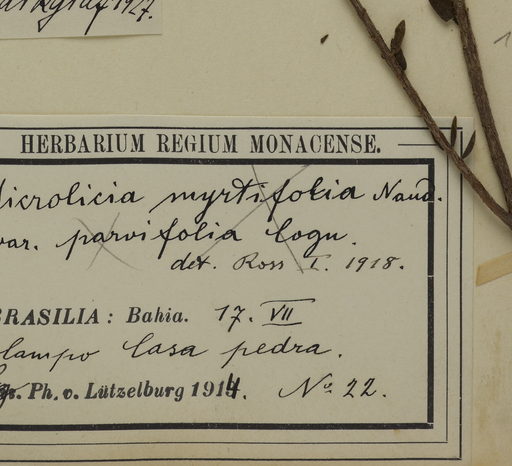 1927.
HERBARIUM REGIUM MONACENSE.
Microlicia myrtifolia Naud.
var. parvifolia Cogn.
det. Ross I. 1918.
BRASILIA: Bahia. 17. VII
Campo Casa pedra.
Ph. v. Lützelburg 1914. No. 22.